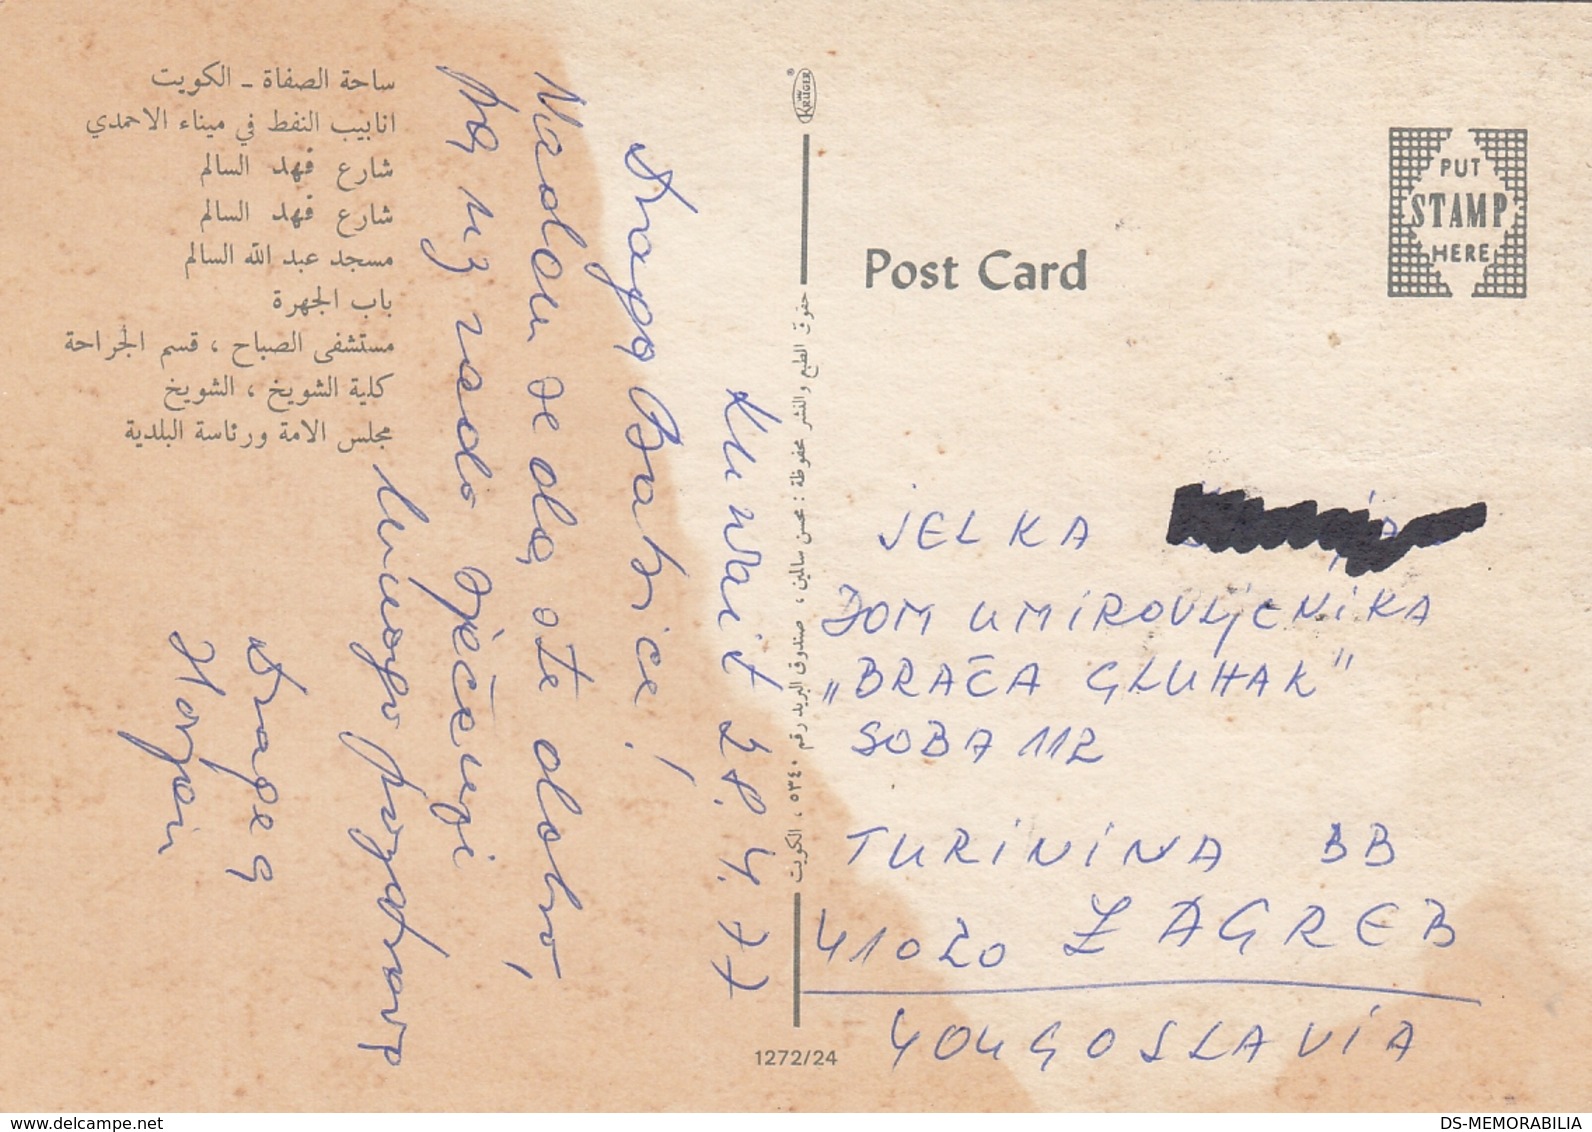 ساحة الصفاة - الكويت
انابيب النفط في ميناء الاحمدي
شارع فهد السالم
شارع فهد السالم
مسجد عبد الله السالم
باب الجهرة
مستشفى الصباح ، قسم الجراحة
كلية الشويخ ، الشويخ
مجلس الامة ورئاسة البلدية
Kuwait 28.4.77
Draga Bakice!
Nadam se da ste dobro,
pa uz rado sjećenje
mnogo pozdrava
Drage
KRÜGER
حقوق الطبع والنشر محفوظة : محسن سالمين ، صندوق البريد رقم ٥٣٤٠ ، الكويت
1272/24
Post Card
PUT
STAMP
HERE
JELKA
DOM UMIROVLJENIKA
„BRAĆA GLUHAK"
SOBA 112
TURININA BB
41020 ZAGREB
YOUGOSLAVIA
DS-MEMORABILIA